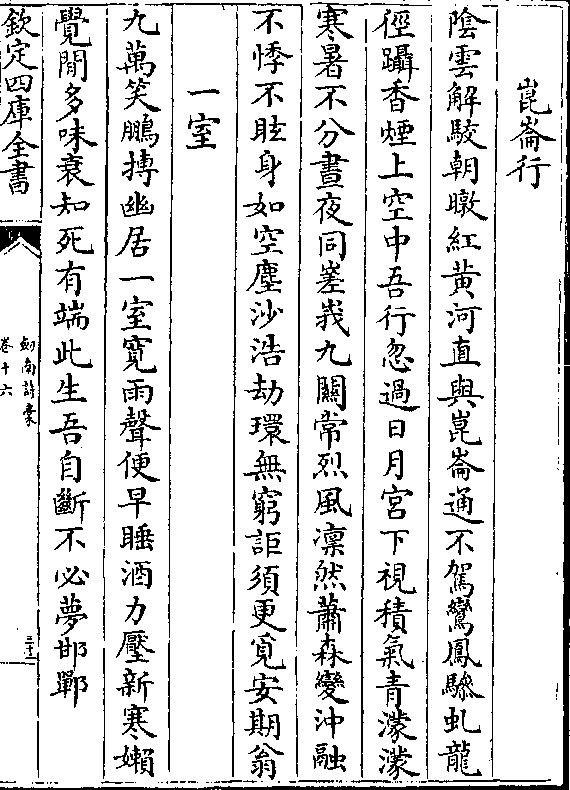 崑崙行
陰雲解駮朝暾紅黄河直與崑崙通不駕鸞鳳驂虬龍
徑躡香煙上空中吾行忽過日月宫下視積氣青濛濛
寒暑不分晝夜同嵳峩九關常烈風凛然蕭森變沖融
不悸不眩身如空塵沙浩劫環無窮詎須更覓安期翁
一室
九萬笑鵬摶幽居一室寛雨聲便早睡酒力壓新寒嬾
覺閒多味衰知死有端此生吾自斷不必夢邯鄲
欽定四庫全書
劍南詩稾
卷十六